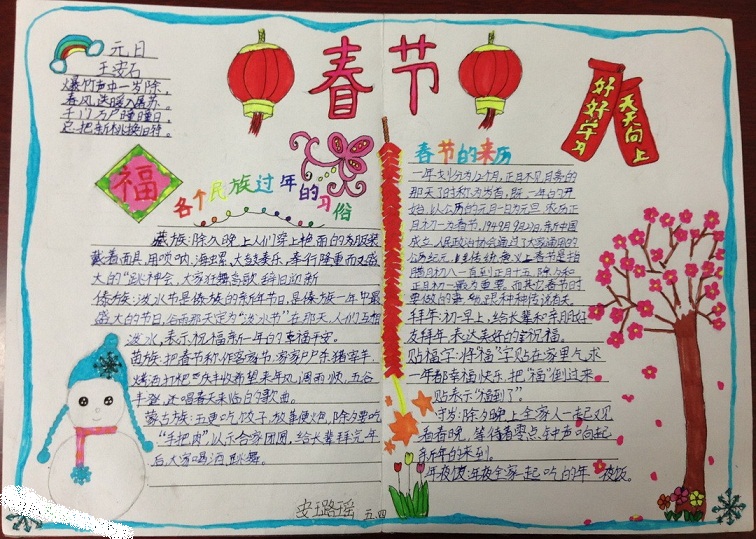 元日
王安石
爆竹声中一岁除,
春风送暖入屠苏。
千门万户曈曈日,
总把新桃换旧符。
春节
好好学习
天天向上
福
各个民族过年的习俗
藏族:除夕晚上人们穿上艳丽的为服装
戴着面具用唢呐、海螺、大鼓奏乐,举行隆重而又盛
大的“跳神会,大家狂舞高歌辞旧迎新
傣族:泼水节是傣族的新年节日,是傣族一年中最
盛大的节日,
泼水,表示祝福新一年的幸福平安。
苗族:把春节称作客家节,家家户户杀猪宰羊,
烤酒打粑庆丰收希望来年风调雨顺,五谷
丰登,还唱春天来临的歌曲。
蒙古族:五更吃饺子,放革便火包,除夕要吃
“手把肉”,以示合家团圆,给长辈拜完年
后,大家喝酒,跳舞。
春节的来历
一年划分为12个月,
始,以公历的元月一日为元旦,农历正
月初一为春节,1949年9月27日,新中国
成立,人民政治协会通过了大家通用的
腊月初八一直到正月十五,除夕和
正月初一最为重要,而其它春节时
要做的事,
拜年:初一早上,给长辈和亲朋好
友拜年,表达美好的祝福。
贴福字:将“福”字贴在家里,求
一年都幸福快乐,把“福”倒过来
贴表示“福到了”。
守岁:除夕晚上全家人一起又见
看春晚,等待着零点钟声响起
新年的来到。
年夜饭:年夜全家一起吃的年夜饭。
安璐瑶 五.四